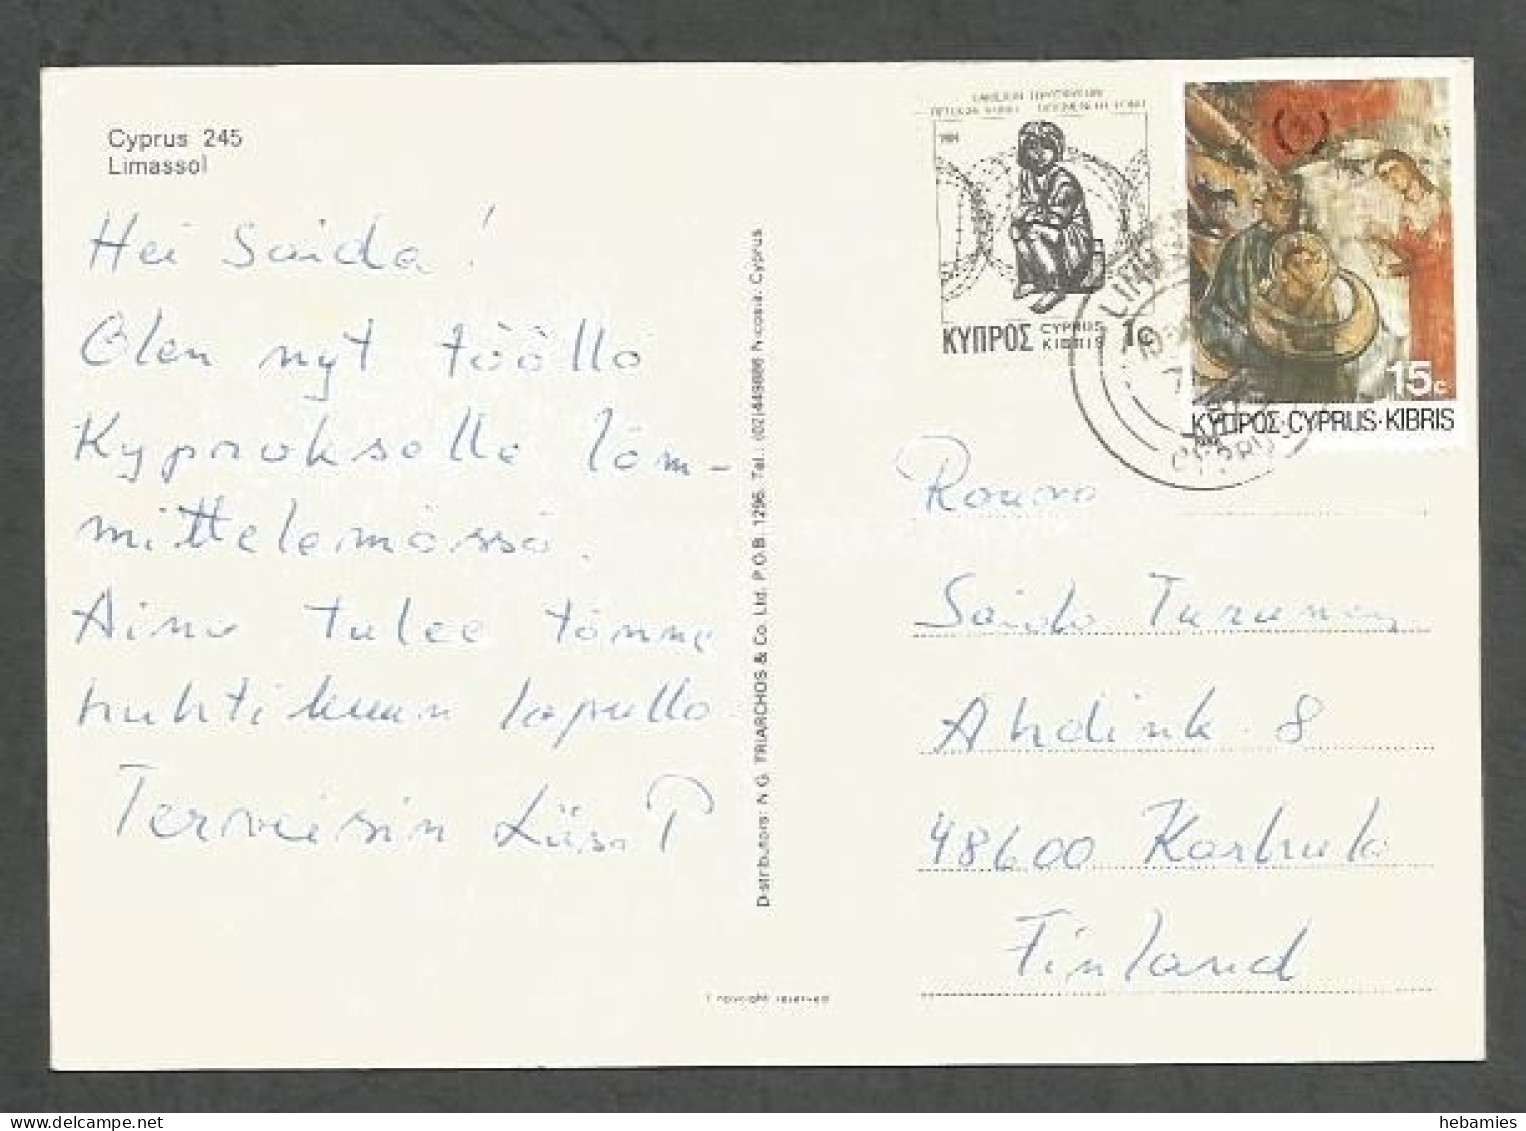 Cyprus 245
Limassol
Hei Saida!
Olen nyt täällä
Kyproksella läm-
mittelemässä.
Aino tulee tänne
huhtikuun lopulla
Terveisin Liisa P
Distributors: N.G. TRIARCHOS & Co. Ltd. P.O.B. 1296. Tel. (02)449886 Nicosia Cyprus
Copyright reserved
1984
ΚΥΠΡΟΣ CYPRUS KIBRIS 1c
15c
ΚΥΠΡΟΣ·CYPRUS·KIBRIS
CYPRUS
Rouva
Saida Turunen
Ahdink. 8
48600 Karhula
Finland
hebamies